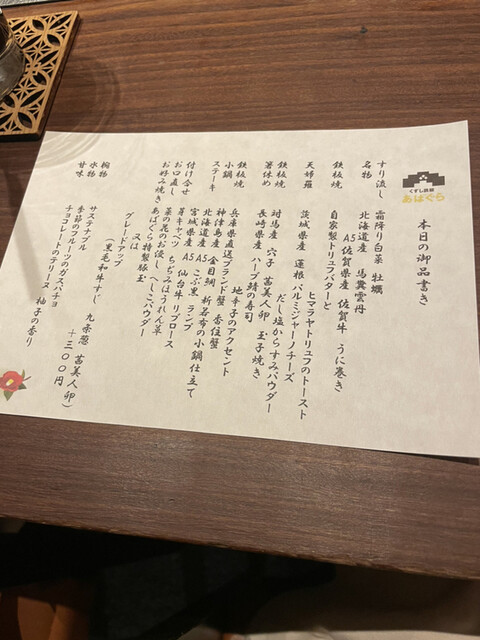 くずし鉄板
あばぐら
本日の御品書き
すり流し 霜降り白菜 牡蠣
名物 北海道産 馬糞雲丹
A5佐賀県産 佐賀牛 うに巻き
鉄板焼 自家製トリュフバターと
ヒマラヤトリュフのトースト
天婦羅 茨城県産 蓮根 パルミジャーノチーズ
だし塩からすみパウダー
鉄板焼 対馬産 穴子 茜美人卵 玉子焼き
箸休め 長崎県産 ハーブ鯖の寿司
地辛子のアクセント
鉄板焼 兵庫県直送ブランド蟹 香住蟹
小鍋 神津島産 金目鯛 新若布の小鍋仕立て
ステーキ 北海道産 A5 こぶ黒 ランプ
宮城県産 A5 仙台牛 リブロース
付け合せ 芽キャベツ ちぢみほうれん草
お口直し 菜の花のお浸し いしこパウダー
お好み焼き あばぐら特製豚玉
又は
グレードアップ
(黒毛和牛すじ 九条葱 茜美人卵)
+300円
椀物 サステナブル
水物 季節のフルーツのガスパチョ
甘味 チョコレートのテリーヌ 柚子の香り